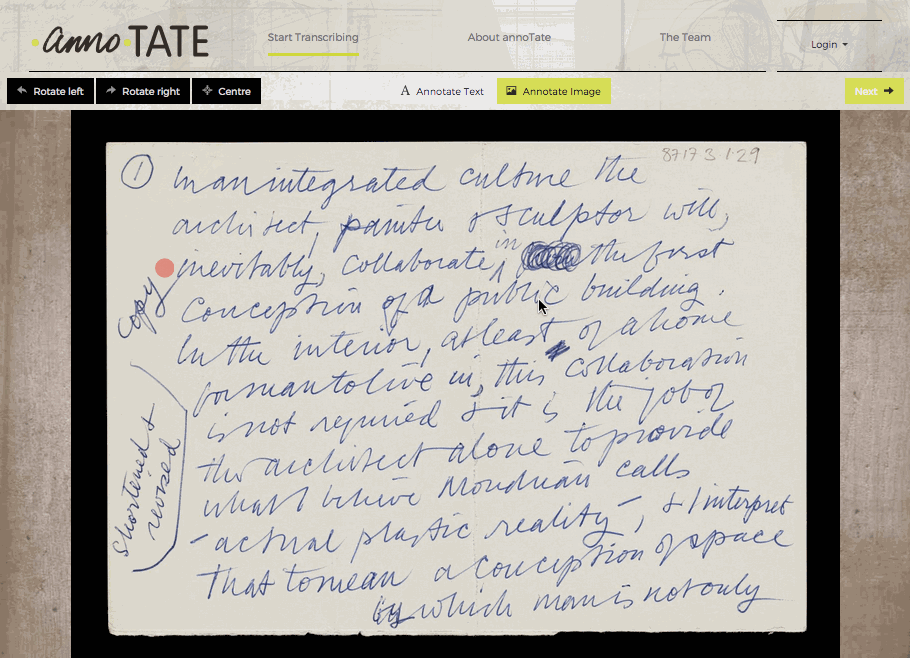 anno TATE
Start Transcribing
About annoTate
The Team
Login
Rotate left
Rotate right
Centre
Annotate Text
Annotate Image
Next
8717 3 1·29
1
In an integrated culture the
architect, painter & sculptor will,
inevitably, collaborate, in the first
Conception of a public building.
In the interior, at least of a home
for man to live in, this collaboration
is not required & it is the job of
the architect alone to provide
what I believe Mondrian calls
"actual plastic reality", & I interpret
that to mean a conception of space
by which man is not only
Copy
Shortened &
revised